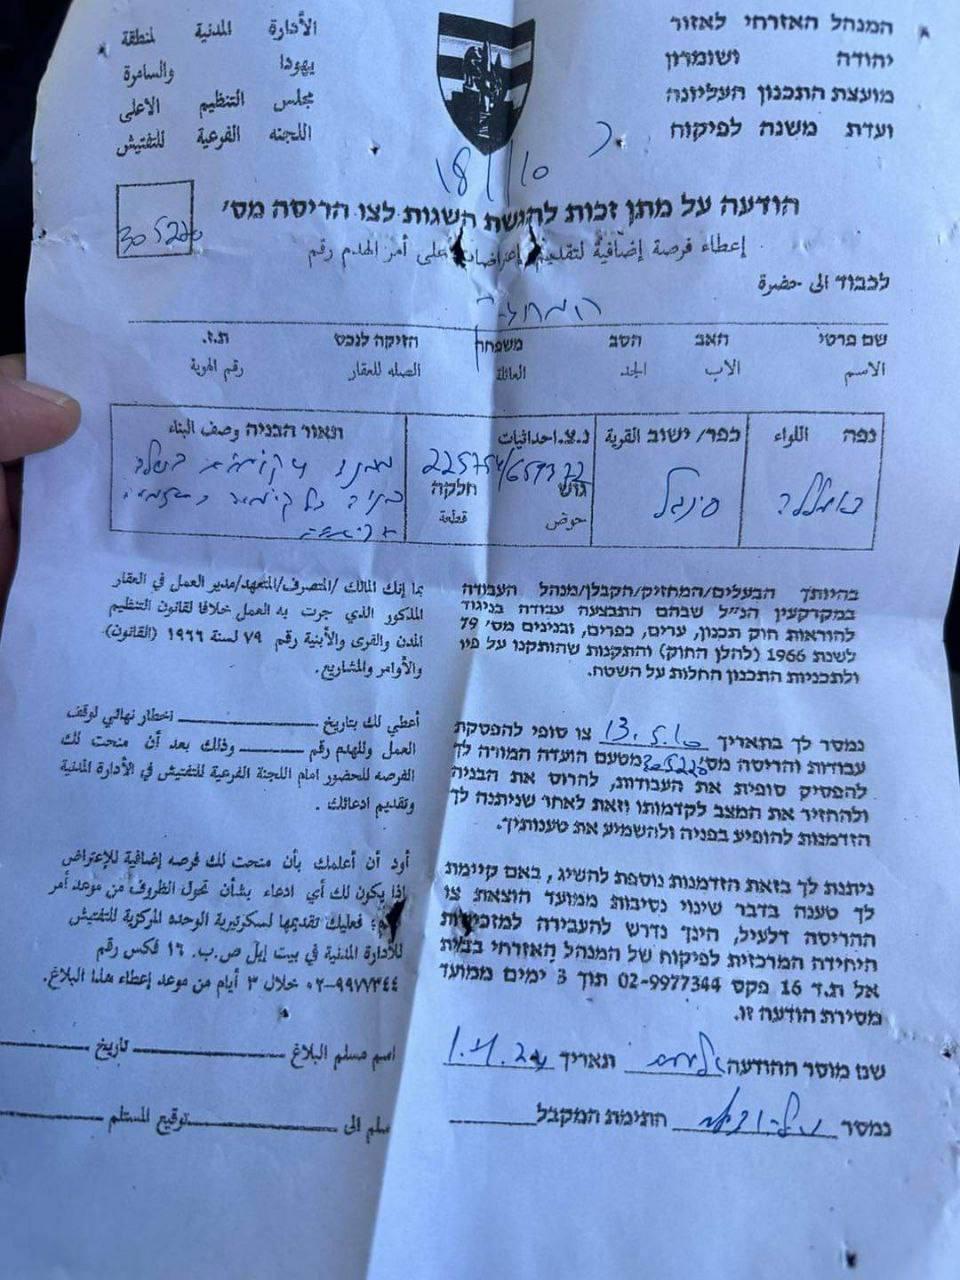 המנהל האזרחי לאזור
יהודה ושומרון
מועצת התכנון העליונה
ועדת משנה לפיקוח
الأدارة المدنية لمنطقة
يهودا والسامرة
مجلس التنظيم الاعلى
اللجنه الفرعية للتفتيش
18/10
הודעה על מתן זכות להגשת השגות לצו הריסה מס'
305220
إعطاء فرصة إضافية لتقديم إعتراضات على أمر الهدم رقم
לכבוד الى حضرة
המחזיק
שם פרטי האב הסב משפחה הזיקה לנכס ת.ז.
الاسم الاب الجد العائلة الصله للعقار رقم الهوية
נפה اللواء
רמאללה
כפר/ ישוב القرية
סינג'ל
נ.צ. احداثيات
225754/659372
גוש חלקה
حوض قطعة
תאור הבניה وصف البناء
בהיותך הבעלים/המחזיק/הקבלן/מנהל העבודה
במקרקעין הנ"ל שבהם התבצעה עבודה בניגוד
להוראות חוק תכנון, ערים, כפרים, ובנינים מס' 79
לשנת 1966 (להלן החוק) והתקנות שהותקנו על פיו
ולתכניות התכנון החלות על השטח.
נמסר לך בתאריך 13.5.10 צו סופי להפסקת
עבודות והריסה מס' 305220 מטעם הועדה המורה לך
להפסיק סופית את העבודות, להרוס את הבניה
ולהחזיר את המצב לקדמותו וזאת לאחר שניתנה לך
הזדמנות להופיע בפניה ולהשמיע את טענותיך.
ניתנת לך בזאת הזדמנות נוספת להשיג, באם קיימת
לך טענה בדבר שינוי נסיבות ממועד הוצאת צו
ההריסה דלעיל, הינך נדרש להעבירה למזכירות
היחידה המרכזית לפיקוח של המנהל האזרחי בבית
אל ת.ד 16 פקס 02-9977344 תוך 3 ימים ממועד
מסירת הודעה זו.
שם מוסר ההודעה תאריך 1.4.24
נמסר חתימת המקבל
بما إنك المالك /المتصرف/المتعهد/مدير العمل في العقار
المذكور الذي جرت به العمل خلافا لقانون التنظيم
المدن والقرى والأبنية رقم ٧٩ لسنة ١٩٦٦ (القانون)
والأوامر والمشاريع.
أعطي لك بتاريخ اخطار نهائي لوقف
العمل وللهدم رقم وذلك بعد أن منحت لك
الفرصه للحضور امام اللجنة الفرعية للتفتيش في الأدارة المدنية
وتقديم ادعائك .
أود أن أعلمك بأن منحت لك فرصه إضافية للإعتراض
إذا يكون لك أي ادعاء بشأن تحول الظروف من موعد أمر
فعليك تقديمها لسكرتيرية الوحده المركزية للتفتيش
للأدارة المدنية في بيت إيل ص.ب. ١٦ فكس رقم
٠٢-٩٩٧٧٣٤٤ خلال ٣ أيام من موعد إعطاء هذا البلاغ.
اسم مسلم البلاغ تاريخ
سلم الى توقيع المستلم